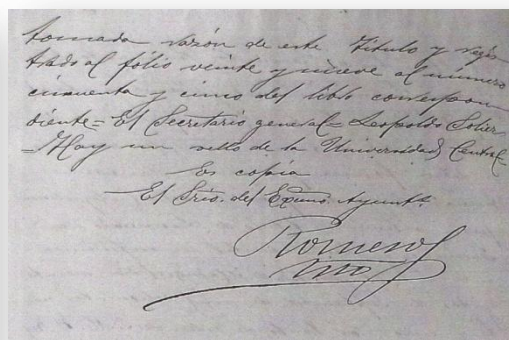 tomada razón de este Título y regis
trado al folio veinte y nueve al número
cincuenta y cinco del libro correspon
diente = El Secretario general = Leopoldo Solier
= Hay un sello de la Universidad Central =
Es copia
El Srio. del Excmo. Ayuntº
Romero